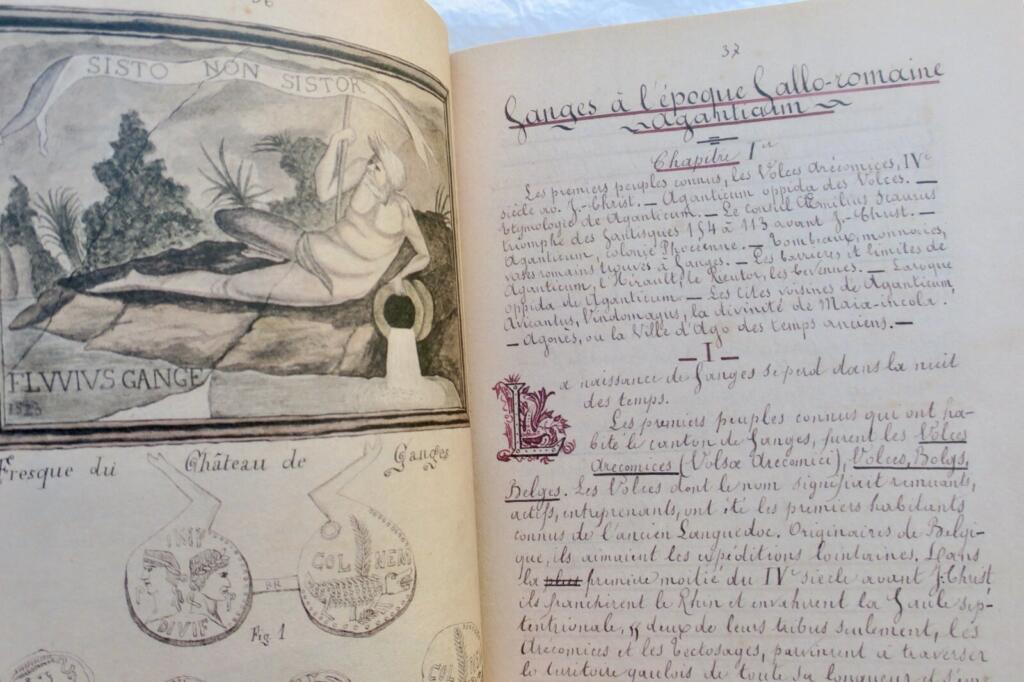 36
SISTO NON SISTOR
FLVVIVS GANGE
1523
Fresque du Château de Ganges
IMP
DIVIF
COL NEM
Fig. 1
37
Ganges à l'époque Gallo-romaine
Aganticum
Chapitre Ier
Les premiers peuples connus, les Volces Arécomices, IVe
siècle av. J.-Christ. — Aganticum oppida des Volces. —
Etymologie de Aganticum. — Le consul Æmilius Scaurus
triomphe des Gantisques 154 à 113 avant J.-Christ. —
Aganticum, colonie Phocienne. — Tombeaux, monnaies,
vases romains trouvés à Ganges. — Les barrières et limites de
Aganticum, l'Hérault, le Rieutor, les Cévennes. — Laroque
oppida de Aganticum — Les cités voisines de Aganticum
Avicantus, Vindomagus, la divinité de Maïa-incola.
— Agonès, ou la Ville d'Ago des temps anciens. —
— I —
La naissance de Ganges se perd dans la nuit
des temps.
Les premiers peuples connus qui ont ha-
bité le canton de Ganges, furent les Volces
Arecomices (Volsœ Arecomici), Volces, Bolgs,
Belges. Les Volces dont le nom signifiait remuants,
actifs, entreprenants, ont été les premiers habitants
connus de l'ancien Languedoc. Originaires de Belgi-
que, ils aimaient les expéditions lointaines. Dans
la plus première moitié du IVe siècle avant J. Christ,
ils franchirent le Rhin et envahirent la Gaule sep-
tentrionale, deux de leurs tribus seulement, les
Arecomices et les Tectosages, parvinrent à traverser
le territoire gaulois de toute sa longueur et s'em